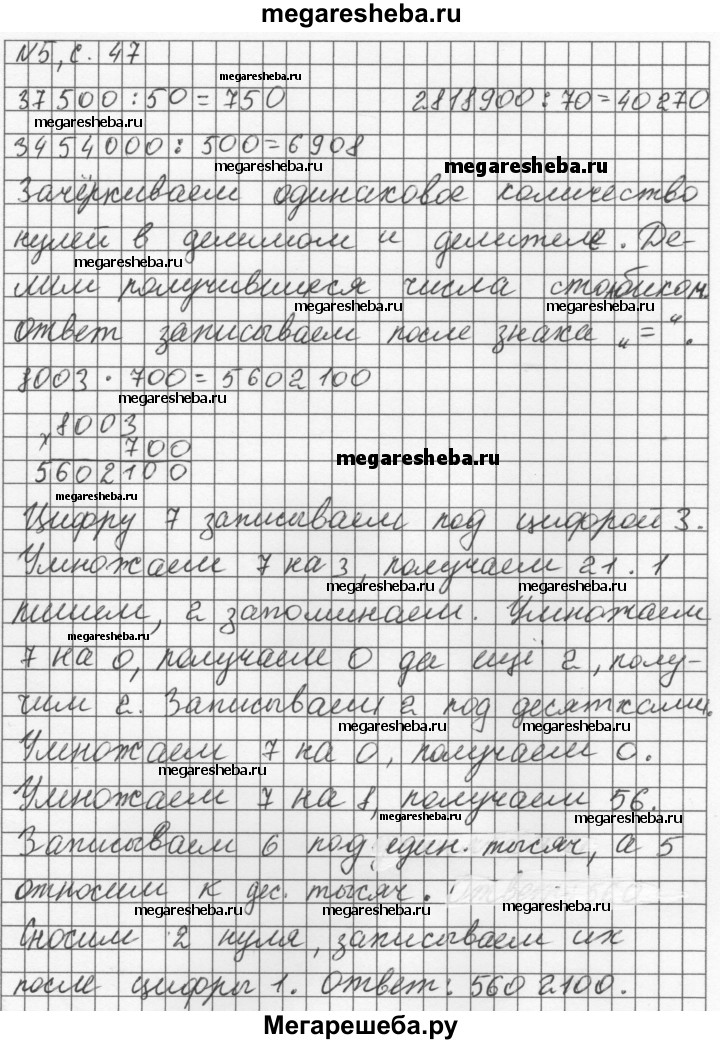 megaresheba.ru
N5, с. 47
megaresheba.ru
37500 : 50 = 750 2818900 : 70 = 40270
megaresheba.ru
3454000 : 500 = 6908
megaresheba.ru megaresheba.ru
Зачёркиваем одинаковое количество
нулей в делимом и делителе. Де-
megaresheba.ru
лим получившиеся числа столбиком.
megaresheba.ru megaresheba.ru
Ответ записываем после знака „=“.
8003 · 700 = 5602100
megaresheba.ru
8003
× 700
megaresheba.ru
5602100
megaresheba.ru
Цифру 7 записываем под цифрой 3.
Умножаем 7 на 3, получаем 21. 1
megaresheba.ru megaresheba.ru
пишем, 2 запоминаем. Умножаем
megaresheba.ru
7 на 0, получаем 0 да ещё 2, полу-
чим 2. Записываем 2 под десятками.
megaresheba.ru megaresheba.ru
Умножаем 7 на 0, получаем 0.
megaresheba.ru
Умножаем 7 на 8, получаем 56.
megaresheba.ru megaresheba.ru
Записываем 6 под един. тысяч, а 5
относим к дес. тысяч.
megaresheba.ru megaresheba.ru megaresheba.ru
Сносим 2 нуля, записываем их
после цифры 1. Ответ: 5602100.
Мегарешеба.ру